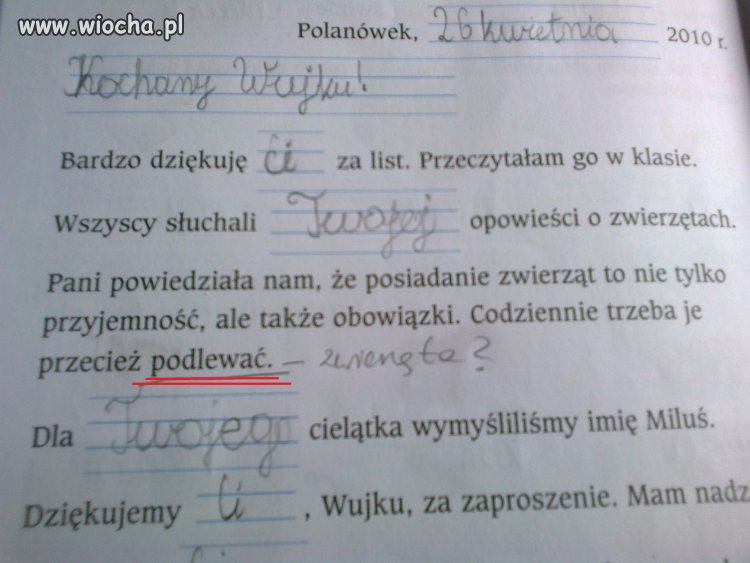 www.wiocha.pl
Polanówek, 26 kwietnia 2010 r.
Kochany Wujku!
Bardzo dziękuję Ci za list. Przeczytałam go w klasie.
Wszyscy słuchali Twojej opowieści o zwierzętach.
Pani powiedziała nam, że posiadanie zwierząt to nie tylko
przyjemność, ale także obowiązki. Codziennie trzeba je
przecież podlewać. – zwierzęta?
Dla Twojego cielątka wymyśliliśmy imię Miluś.
Dziękujemy Ci, Wujku, za zaproszenie. Mam nadz